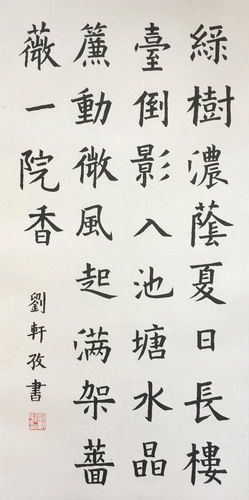 綠樹濃蔭夏日長樓
臺倒影入池塘水晶
簾動微風起滿架薔
薇一院香
劉軒孜書